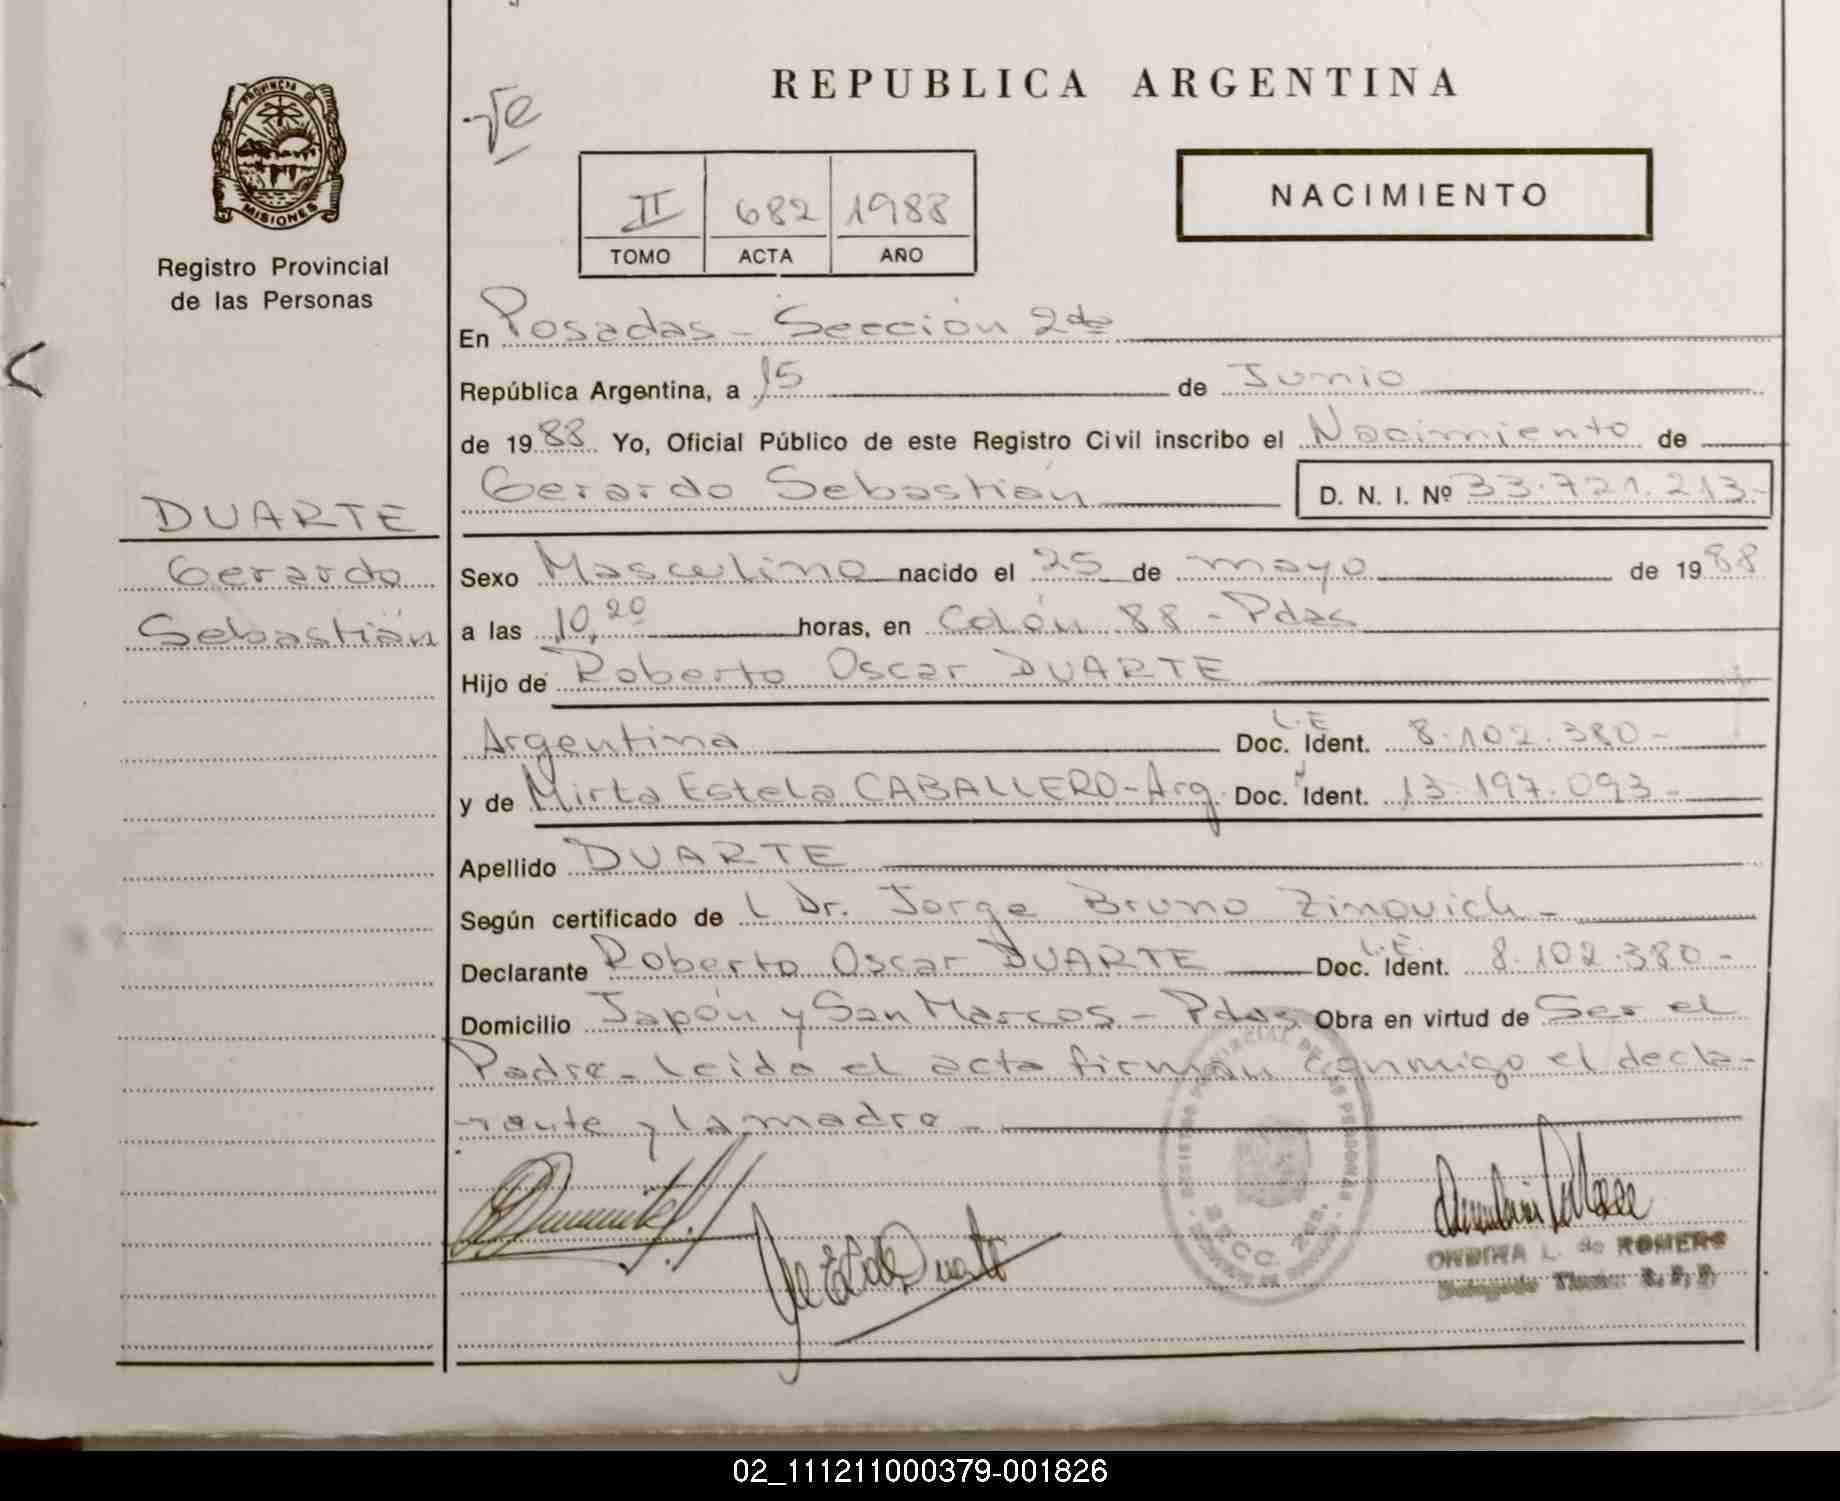 REPUBLICA ARGENTINA
PROVINCIA DE
MISIONES
Registro Provincial
de las Personas
II 682 1988
TOMO ACTA AÑO
NACIMIENTO
En Posadas - Sección 2da
República Argentina, a 15 de Junio
de 1988 Yo, Oficial Público de este Registro Civil inscribo el Nacimiento de
Gerardo Sebastián D. N. I. Nº 33.721.213-
DUARTE
Gerardo
Sebastián
Sexo Masculino nacido el 25 de mayo de 1988
a las 10,20 horas, en Colón 88 - Pdas
Hijo de Roberto Oscar DUARTE
Argentina Doc. Ident. L.E 8.102.380-
y de Mirta Estela CABALLERO-Arg. Doc. Ident. 13.197.093-
Apellido DUARTE
Según certificado de Dr. Jorge Bruno Zinovich -
Declarante Roberto Oscar DUARTE Doc. Ident. L.E. 8.102.380-
Domicilio Japón y San Marcos - Pdas Obra en virtud de Ser el
Padre - leida el acta firman conmigo el decla-
-rante y la madre -
SECC. 2da.
ONDINA L. de ROMERO
02_111211000379-001826